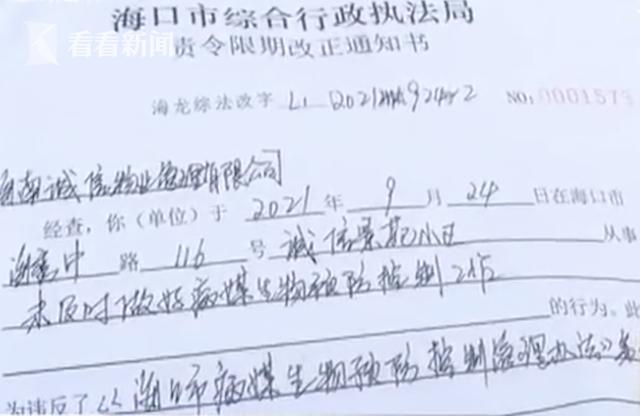 海口市综合行政执法局
看看新闻
责令限期改正通知书
海龙综法改字 NO:0001573
海南诚信物业管理有限公司
经查，你（单位）于 2021 年 9 月 24 日在海口市
中 路 116 号 诚信 小区 从事
未及时做好病媒生物预防控制工作
的行为。此
为违反了《海口市病媒生物预防控制管理办法》